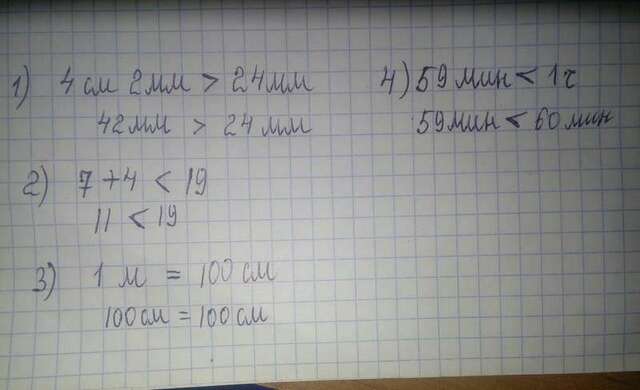 1) 4 см 2мм > 24мм
42мм > 24мм
2) 7 + 4 < 19
11 < 19
3) 1 м = 100 см
100 см = 100 см
4) 59 мин < 1 ч
59 мин < 60 мин